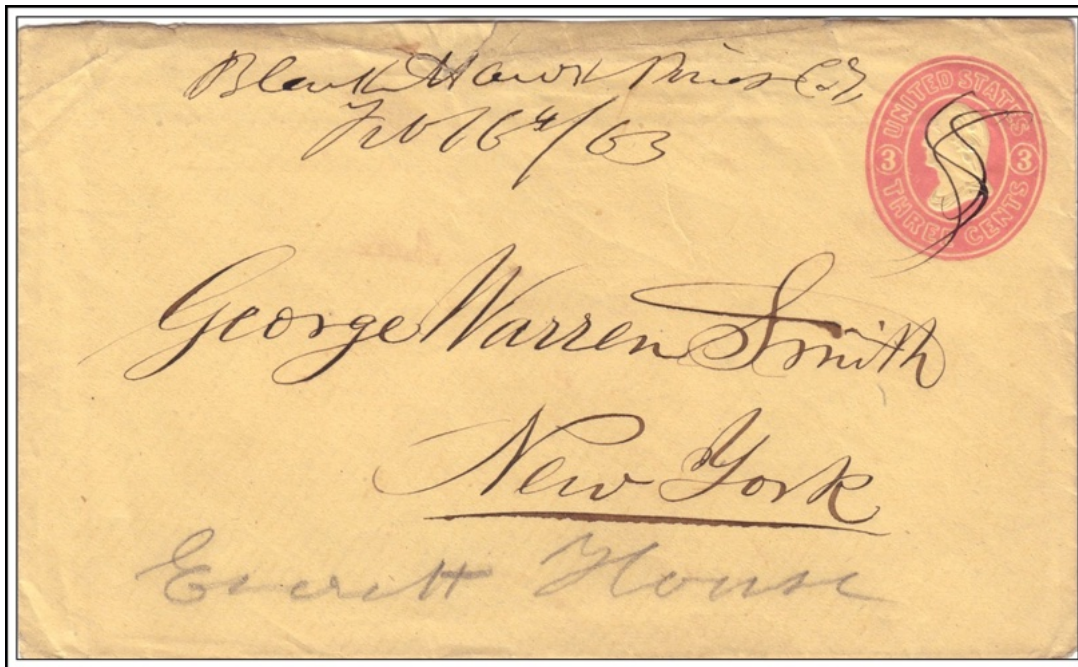 Black Hawk Point C.T,
Feb 16th/63
UNITED STATES
3 3
THREE CENTS
George Warren Smith
New York
Everett House